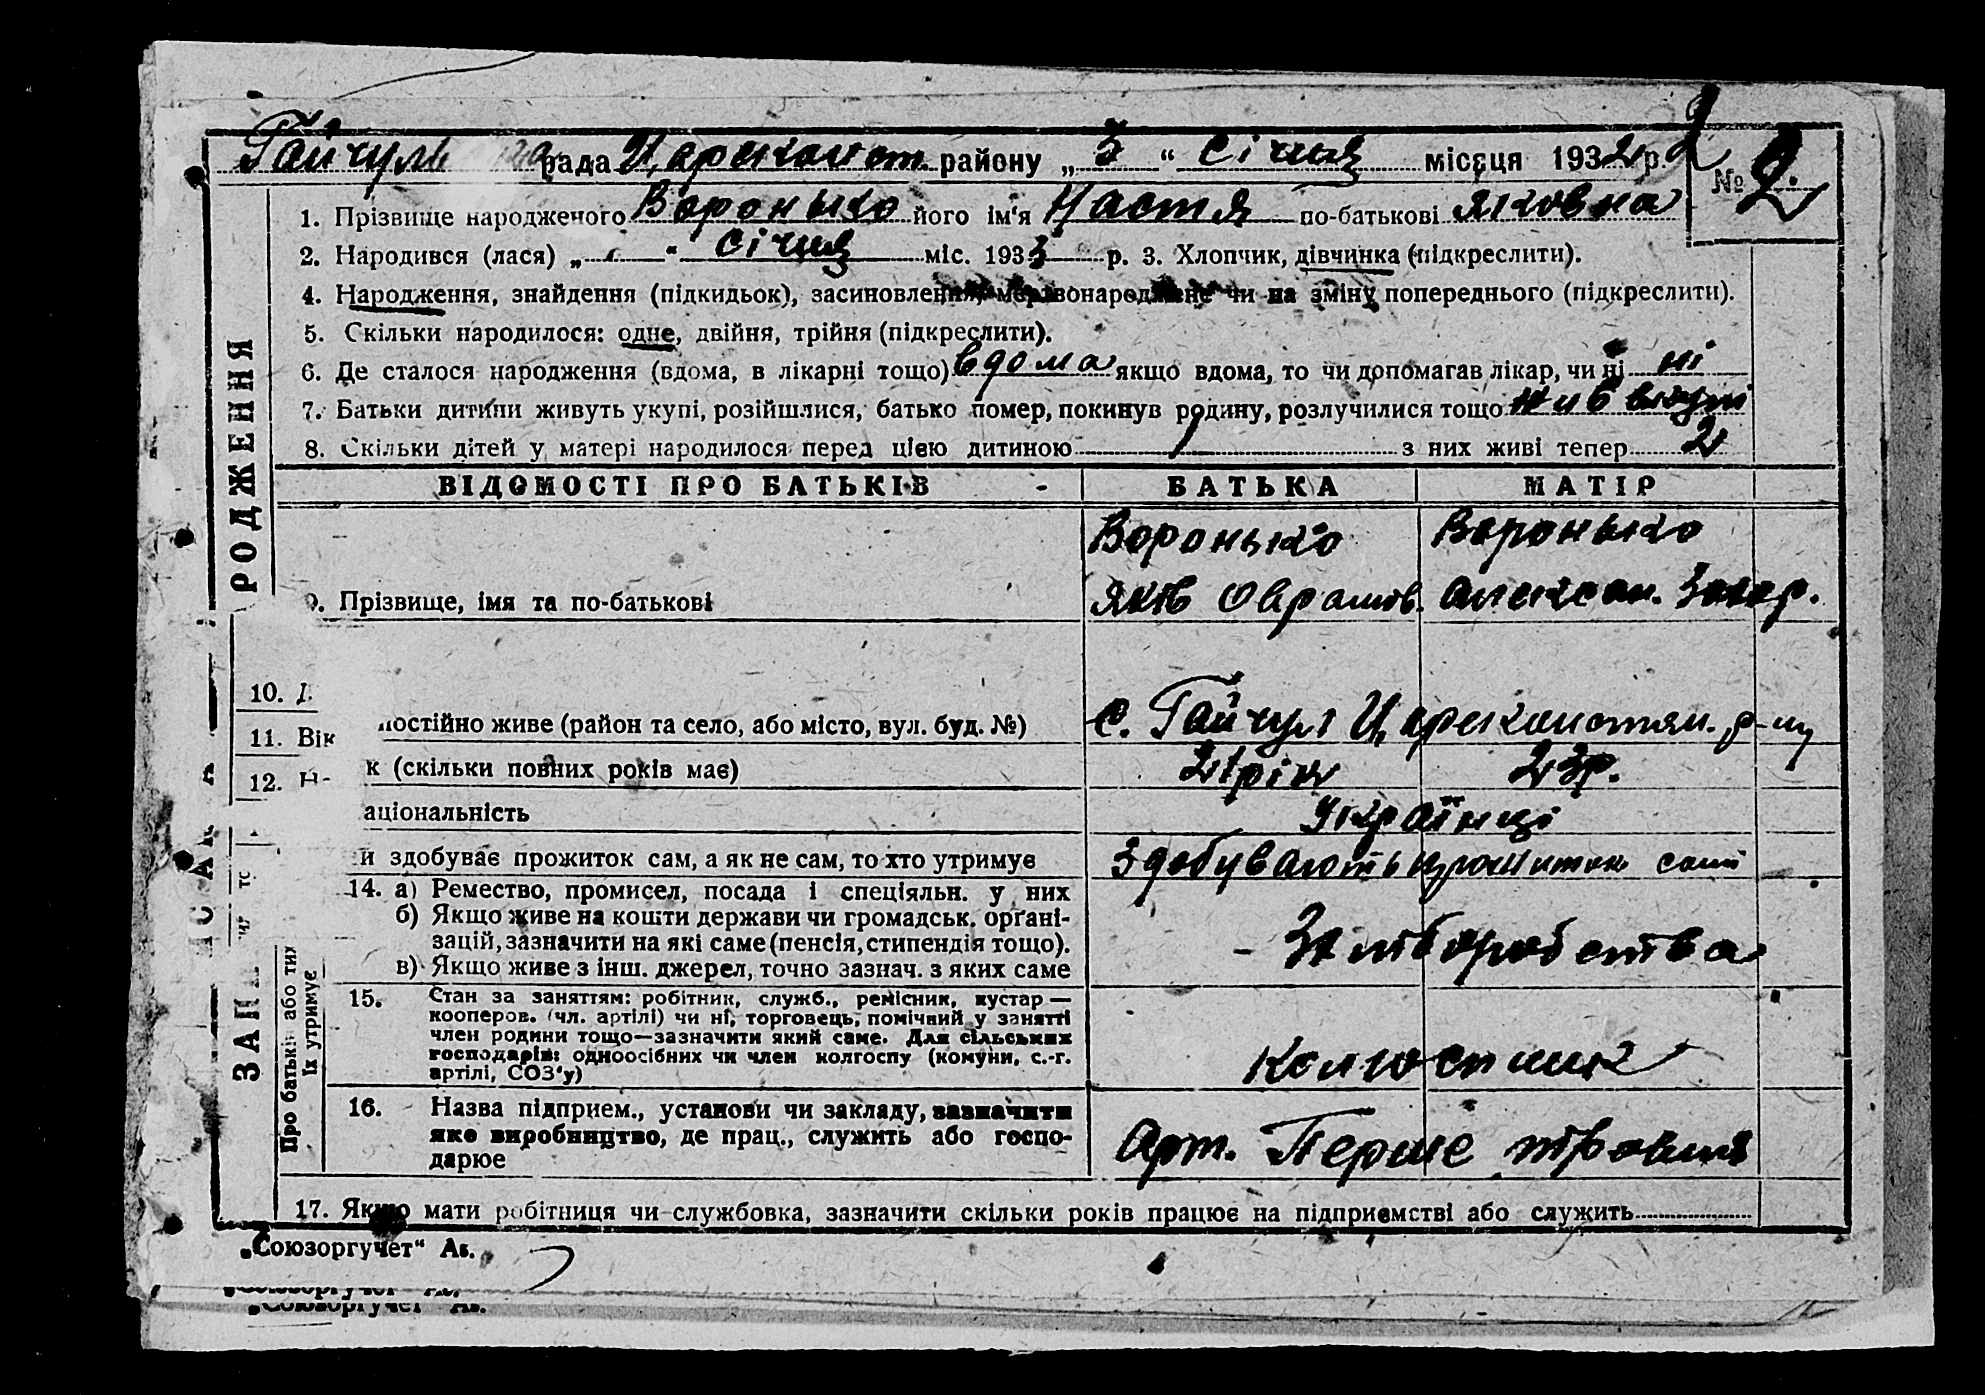 Гайчул рада Царекост. району „3“ Січня місяця 1932 р. 2
№ 2.
1. Прізвище народженого Воронько його ім'я Настя по-батькові Яковна
2. Народився (лася) „ “ Січня міс. 1933 р. 3. Хлопчик, дівчинка (підкреслити).
4. Народження, знайдення (підкидьок), засиновлення, мертвонароджене чи на зміну попереднього (підкреслити).
5. Скільки народилося: одне, двійня, трійня (підкреслити).
6. Де сталося народження (вдома, в лікарні тощо) вдома якщо вдома, то чи допомагав лікар, чи ні ні
7. Батьки дитини живуть укупі, розійшлися, батько помер, покинув родину, розлучилися тощо
8. Скільки дітей у матері народилося перед цією дитиною 1 з них живі тепер 2
РОДЖЕННЯ
ВІДОМОСТІ ПРО БАТЬКІВ - БАТЬКА МАТІР
Воронько Воронько
9. Прізвище, імя та по-батькові Яків Оврамов. Алексан. Захар.
10.
постійно живе (район та село, або місто, вул. буд. №) с. Гайчул Царекостян. р-ну
11. Вік
к (скільки повних років має) 21 рік 23 р.
12.
аціональність Українці
и здобуває прожиток сам, а як не сам, то хто утримує Здобувають прожиток самі
14. а) Ремество, промисел, посада і спеціяльн. у них
б) Якщо живе на кошти держави чи громадськ. орґані-
зацій, зазначити на які саме (пенсія, стипендія тощо). - Хліборобства
в) Якщо живе з інш. джерел, точно зазнач. з яких саме
15. Стан за заняттям: робітник, служб., ремісник, кустар —
кооперов. (чл. артілі) чи ні, торговець, помічний у занятті
член родини тощо—зазначити який саме. Для сільських
господарів: одноосібних чи член колгоспу (комуни, с.-г. Колгоспник
артілі, СОЗ'у)
16. Назва підприєм., установи чи закладу, зазначити
яке виробництво, де прац., служить або госпо- Арт. Перше травня
дарюе
Про батьків або тих
їх утримує
ЗАП
17. Якщо мати робітниця чи службовка, зазначити скільки років працює на підприємстві або служить
„Союзоргучет“ Ав.
„Союзоргучет“ Ав.